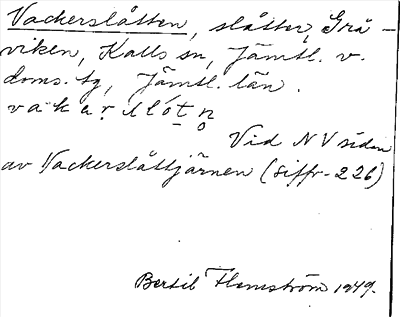 Vackerslåtten, slåtter, Grå-
viken, Kalls sn, Jämtl. v.
doms. tg, Jämtl. län.
Vid NV sidan
av Vackerslåttjärnen (siffr. 226)
Bertil Flemström 1949.